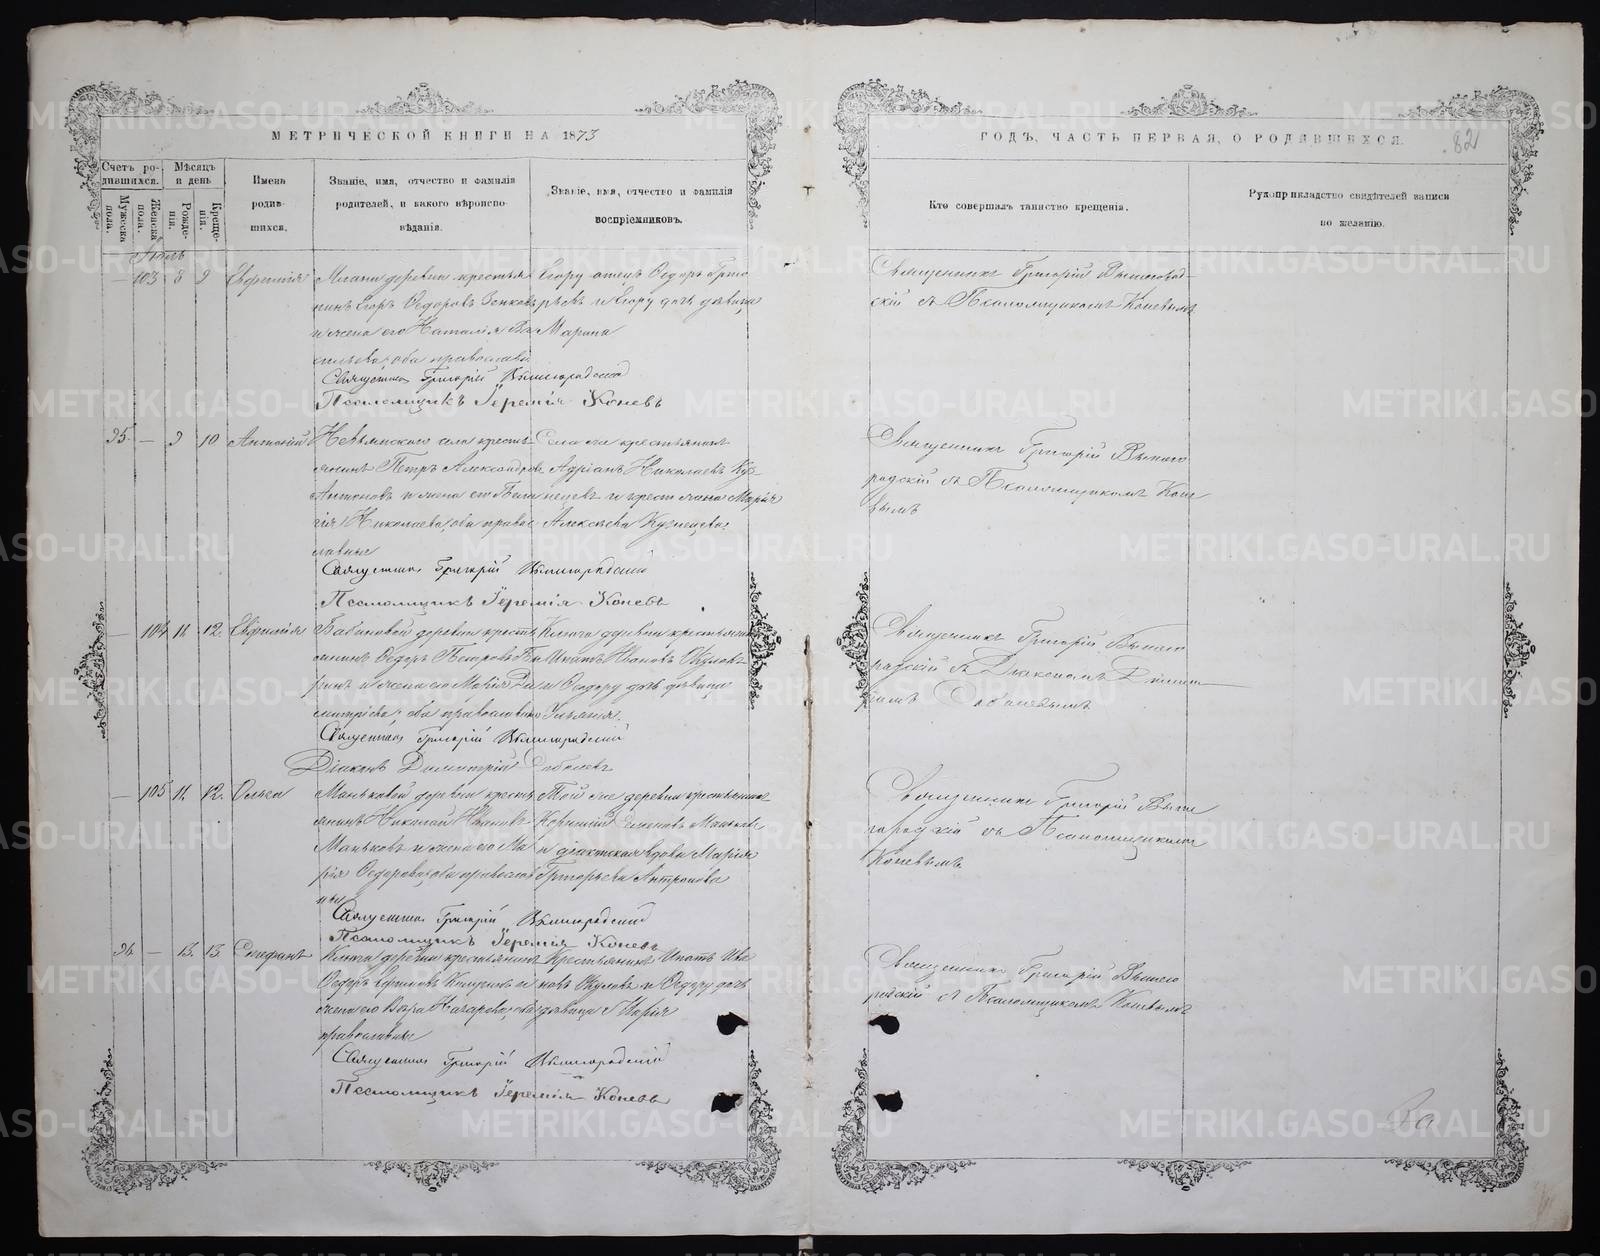 МЕТРИЧЕСКОЙ КНИГИ НА 1873
ГОДЪ, ЧАСТЬ ПЕРВАЯ, О РОДИВШИХСЯ.
82
Счетъ родившихся.
Мужеска пола.
Женска пола.
Мѣсяцъ и день
Рожденія.
Крещенія.
Имена
родив-
шихся.
Званіе, имя, отчество и фамилія
родителей, и какого вѣроиспо-
вѣданія.
Званіе, имя, отчество и фамилія
воспріемниковъ.
Кто совершалъ таинство крещенія.
Рукоприкладство свидѣтелей записи
по желанію.
Іюль
— 103 8 9 Евфимія
деревни крестья
нинъ Егоръ Ѳедоровъ
и жена его Наталія Ва
сильева, оба православн.
Егору отецъ Ѳедоръ Григо
рьевъ и Егору дочь дѣвица
Марина
Священникъ Григорій Вышегород-
скій съ Псаломщикомъ Коневымъ
Священникъ Григорій Вышегородскій
Псаломщикъ Іеремія Коневъ
95 — 9 10 Антоній
Невьянскаго села кресть
янинъ Петръ Александровъ
Антоновъ и жена его Пела
гія Николаева, оба правос
лавные
Села же крестьянинъ
Адріанъ Николаевъ Куз
нецовъ и крест. жена Марія
Алексѣева Кузнецова
Священникъ Григорій Вышего
родскій съ Псаломщикомъ Коне
вымъ
Священникъ Григорій Вышегородскій
Псаломщикъ Іеремія Коневъ
— 104 11. 12. Евфимія
Бабиновой деревни кресть
янинъ Ѳедоръ Петровъ Ба
ринъ и жена его Марія Ди
митріева, оба православно
Ключа деревни крестьянинъ
Ипатъ Ивановъ Окуловъ
и Ѳедору дочь дѣвица
Ульянія.
Священникъ Григорій Вышего
родскій съ Діакономъ Димит
ріемъ Соболевымъ
Священникъ Григорій Вышегородскій
Діаконъ Димитрій Соболевъ
— 105 11. 12. Ольга
Маньковой деревни кресть
янинъ Николай Ивановъ
Маньковъ и жена его Ма
рія Ѳедорова, оба православ
ны
Той же деревни крестьянинъ
Корнилій Семеновъ Маньковъ
и діаконская вдова Марія
Григорьева Антропова
Священникъ Григорій Выше
городскій съ Псаломщикомъ
Коневымъ
Священникъ Григорій Вышегородскій
Псаломщикъ Іеремія Коневъ
96 — 13. 13. Стефанъ
Ключа деревни крестьянинъ
Ѳедоръ и
жена его Вѣра Назарова, оба
православные
Крестьянинъ Ипатъ Ива
новъ Окуловъ и Ѳедору дочь
дѣвица Марія
Священникъ Григорій Вышего
родскій съ Псаломщикомъ Коневымъ
Священникъ Григорій Вышегородскій
Псаломщикъ Іеремія Коневъ
METRIKI.GASO-URAL.RU